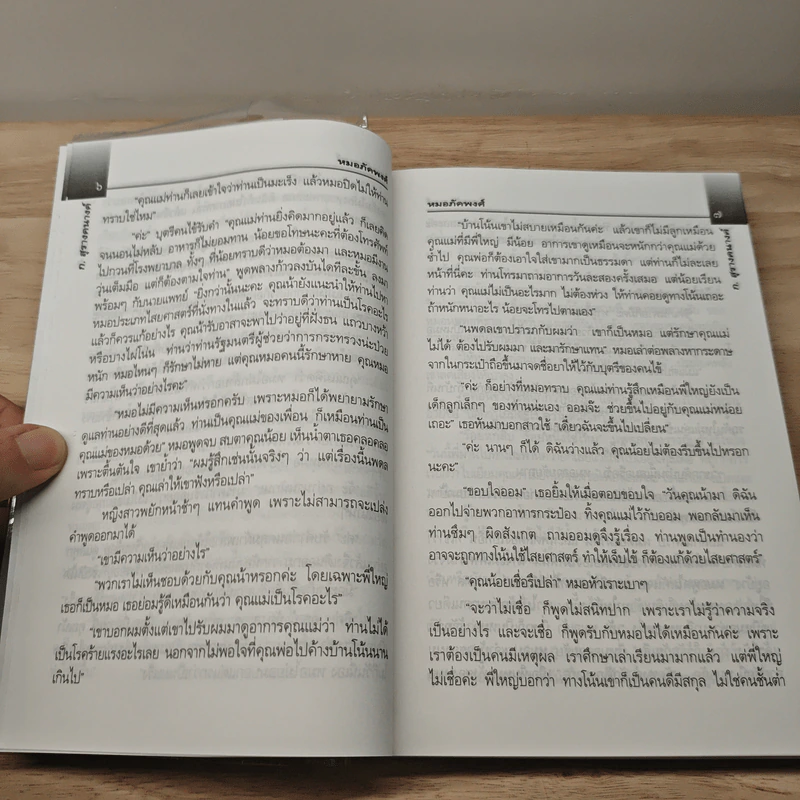 หมอภัคพงศ์
๖
ก. สุรางคนางศ์
"คุณแม่ท่านก็เลยเข้าใจว่าท่านเป็นมะเร็ง แล้วหมอปิดไม่ให้ท่าน
ทราบใช่ไหม"
"ค่ะ" บุตรีคนไข้รับคำ "คุณแม่ท่านยิ่งคิดมากอยู่แล้ว ก็เลยคิด
จนนอนไม่หลับ อาหารก็ไม่ยอมทาน น้อยขอโทษนะคะที่ต้องโทรศัพท์
ไปกวนที่โรงพยาบาล ทั้งๆ ที่น้อยทราบดีว่าหมอต้องมา และหมอมีงาน
วุ่นเต็มมือ แต่ก็ต้องตามใจท่าน" พูดพลางก้าวลงบันไดทีละขั้น ลงมา
พร้อมๆ กับนายแพทย์ "ยิ่งกว่านั้นนะคะ คุณน้ายังแนะนำให้ท่านไปหา
หมอประเภทไสยศาสตร์ที่นั่งทางในแล้ว จะทราบดีว่าท่านเป็นโรคอะไร
แล้วก็ควรแก้อย่างไร คุณน้ารับอาสาจะพาไปว่าอยู่ที่ฝั่งธน แถวบางหว้า
หรือบางไผ่โน่น ท่านว่าท่านรัฐมนตรีผู้ช่วยว่าการกระทรวงน่ะป่วย
หนัก หมอไหนๆ ก็รักษาไม่หาย แต่คุณหมอคนนี้รักษาหาย คุณหมอ
มีความเห็นว่าอย่างไรคะ"
"หมอไม่มีความเห็นหรอกครับ เพราะหมอก็ได้พยายามรักษา
ดูแลท่านอย่างดีที่สุดแล้ว ท่านเป็นคุณแม่ของเพื่อน ก็เหมือนท่านเป็น
คุณแม่ของหมอด้วย" หมอพูดจบ สบตาคุณน้อย เห็นน้ำตาเธอคลอคลอ
เพราะตื้นตันใจ เขาย้ำว่า "ผมรู้สึกเช่นนั้นจริงๆ ว่า แต่เรื่องนี้นพดล
ทราบหรือเปล่า คุณเล่าให้เขาฟังหรือเปล่า"
หญิงสาวพยักหน้าช้าๆ แทนคำพูด เพราะไม่สามารถจะเปล่ง
คำพูดออกมาได้
"เขามีความเห็นว่าอย่างไร"
"พวกเราไม่เห็นชอบด้วยกับคุณน้าหรอกค่ะ โดยเฉพาะพี่ใหญ่
เธอก็เป็นหมอ เธอย่อมรู้ดีเหมือนกันว่า คุณแม่เป็นโรคอะไร"
"เขาบอกผมตั้งแต่เขาไปรับผมมาดูอาการคุณแม่ว่า ท่านไม่ได้
เป็นโรคร้ายแรงอะไรเลย นอกจากไม่พอใจที่คุณพ่อไปค้างบ้านโน้นนาน
เกินไป"
หมอภัคพงศ์
"บ้านโน้นเขาไม่สบายเหมือนกันค่ะ แล้วเขาก็ไม่มีลูกเหมือน
คุณแม่ที่มีพี่ใหญ่ มีน้อย อาการเขาดูเหมือนจะหนักกว่าคุณแม่ด้วย
ซ้ำไป คุณพ่อก็ต้องเอาใจใส่เขามากเป็นธรรมดา แต่ท่านก็ไม่ละเลย
หน้าที่นี่ค่ะ ท่านโทรมาถามอาการวันละสองครั้งเสมอ แต่น้อยเรียน
ท่านว่า คุณแม่ไม่เป็นอะไรมาก ไม่ต้องห่วง ให้ท่านคอยดูทางโน้นเถอะ
ถ้าหนักหนาอะไร น้อยจะโทรไปตามเอง"
"นพดลเขาปรารภกับผมว่า เขาก็เป็นหมอ แต่รักษาคุณแม่
ไม่ได้ ต้องไปรับผมมา และมารักษาแทน" หมอเล่าต่อพลางหากระดาษ
จากในกระเป๋าถือขึ้นมาจดชื่อยาให้ไว้กับบุตรีของคนไข้
"ค่ะ ก็อย่างที่หมอทราบ คุณแม่ท่านรู้สึกเหมือนพี่ใหญ่ยังเป็น
เด็กลูกเล็กๆ ของท่านน่ะเอง ออมจ๊ะ ช่วยขึ้นไปอยู่กับคุณแม่หน่อย
เถอะ" เธอหันมาบอกสาวใช้ "เดี๋ยวฉันจะขึ้นไปเปลี่ยน"
"ค่ะ นานๆ ก็ได้ ดิฉันว่างแล้ว คุณน้อยไม่ต้องรีบขึ้นไปหรอก
นะคะ"
"ขอบใจออม" เธอยิ้มให้เมื่อตอบขอบใจ "วันคุณน้ามา ดิฉัน
ออกไปจ่ายพวกอาหารกระป๋อง ทิ้งคุณแม่ไว้กับออม พอกลับมาเห็น
ท่านซึมๆ ผิดสังเกต ถามออมดูจึงรู้เรื่อง ท่านพูดเป็นทำนองว่า
อาจจะถูกทางโน้นใช้ไสยศาสตร์ ทำให้เจ็บไข้ ก็ต้องแก้ด้วยไสยศาสตร์"
"คุณน้อยเชื่อรึเปล่า" หมอหัวเราะเบาๆ
"จะว่าไม่เชื่อ ก็พูดไม่สนิทปาก เพราะเราไม่รู้ว่าความจริง
เป็นอย่างไร และจะเชื่อ ก็พูดรับกับหมอไม่ได้เหมือนกันค่ะ เพราะ
เราต้องเป็นคนมีเหตุผล เราศึกษาเล่าเรียนมามากแล้ว แต่พี่ใหญ่
ไม่เชื่อค่ะ พี่ใหญ่บอกว่า ทางโน้นเขาก็เป็นคนดีมีสกุล ไม่ใช่คนชั้นต่ำ